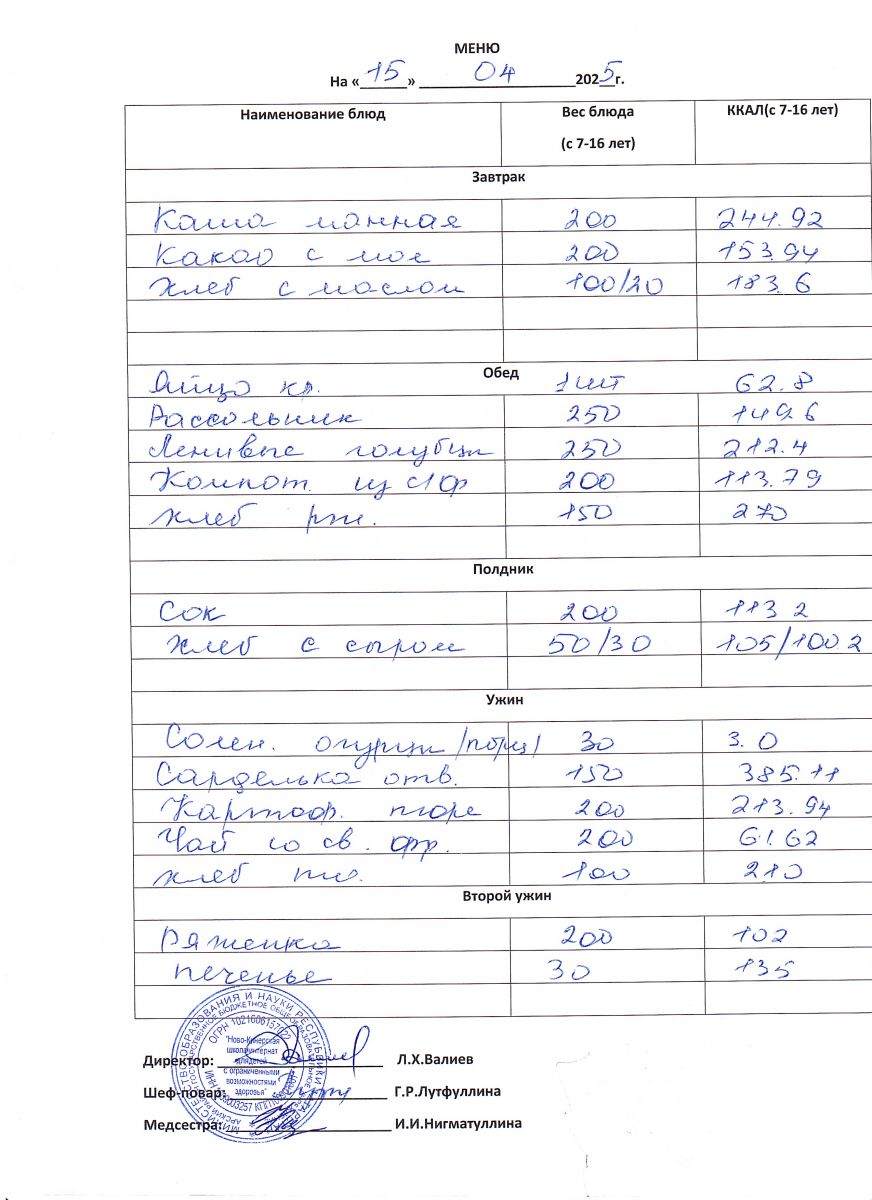 МЕНЮ
На «15» 04 2025г.
Наименование блюд Вес блюда (с 7-16 лет) ККАЛ(с 7-16 лет)
Завтрак
Каша манная 200 244.92
Какао с мол 200 153.94
Хлеб с маслом 100/20 183.6
Обед
Яйцо кр. 1шт 62.8
Рассольник 250 149.6
Ленивые голубцы 250 212.4
Компот из с/ф 200 113.79
Хлеб рж. 150 270
Полдник
Сок 200 113 2
Хлеб с сыром 50/30 105/100 2
Ужин
Солен. огурцы /порц/ 30 3.0
Сарделька отв. 150 385.11
Картоф. пюре 200 213.94
Чай со св. фр. 200 61.62
Хлеб пш. 100 210
Второй ужин
Ряженка 200 102
Печенье 30 135
Директор: Л.Х.Валиев
Шеф-повар: Г.Р.Лутфуллина
Медсестра: И.И.Нигматуллина
"Ново-Кинерская
школа-интернат
для детей
с ограниченными
возможностями
здоровья"